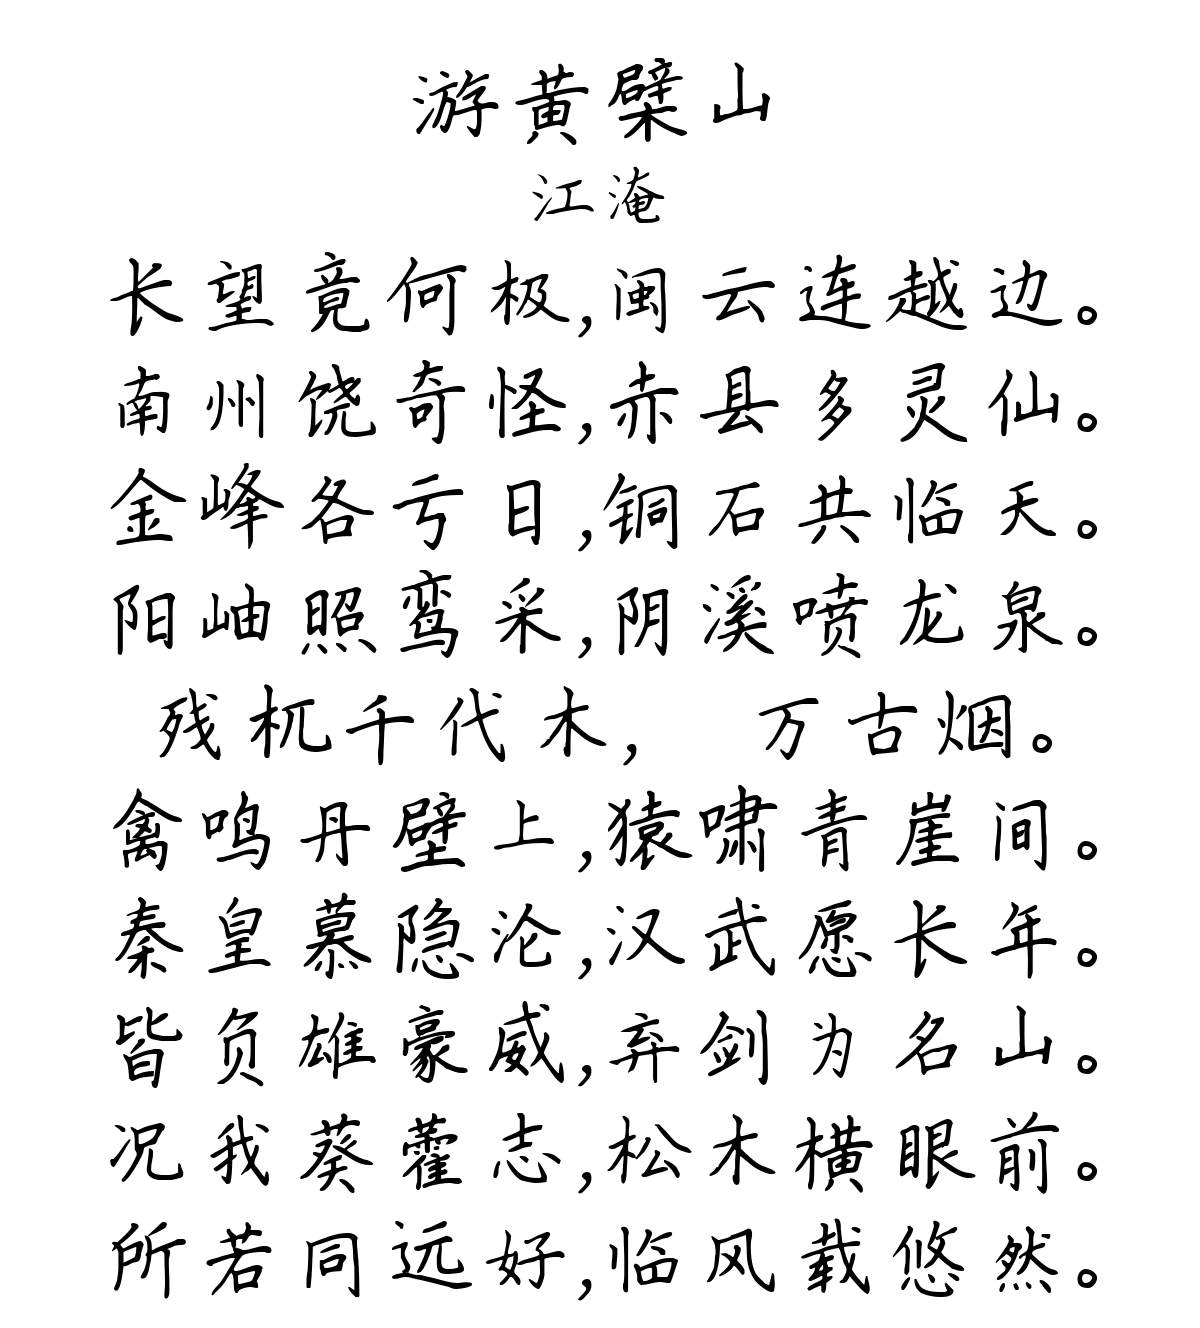 游黄檗山
江淹
长望竟何极,闽云连越边。
南州饶奇怪,赤县多灵仙。
金峰各亏日,铜石共临天。
阳岫照鸾采,阴溪喷龙泉。
残杌千代木, 万古烟。
禽鸣丹壁上,猿啸青崖间。
秦皇慕隐沦,汉武愿长年。
皆负雄豪威,弃剑为名山。
况我葵藿志,松木横眼前。
所若同远好,临风载悠然。